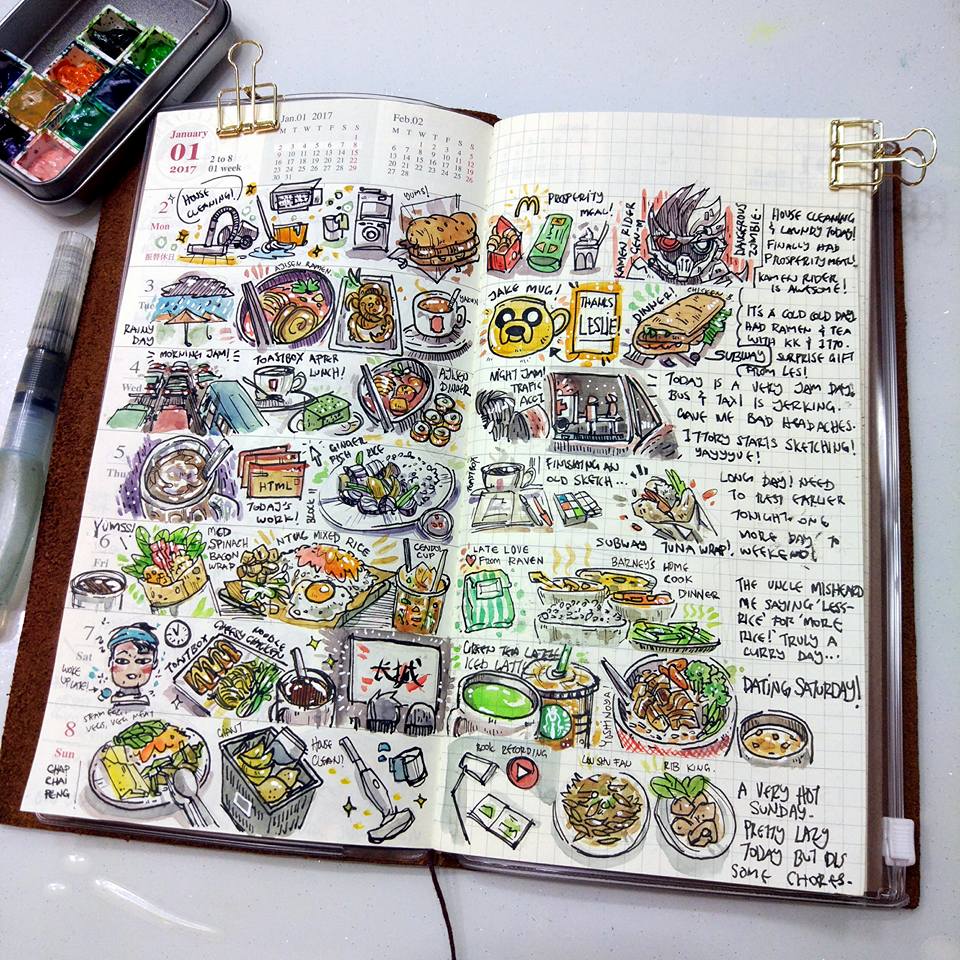 January
01
2017
2 to 8
01 week
Jan.01 2017
M T W T F S S
1
2 3 4 5 6 7 8
9 10 11 12 13 14 15
16 17 18 19 20 21 22
23 24 25 26 27 28 29
30 31
Feb.02
M T W T F S S
1 2 3 4 5
6 7 8 9 10 11 12
13 14 15 16 17 18 19
20 21 22 23 24 25 26
27 28
2
Mon
振替休日
HOUSE
CLEANING!
PROSPERITY
MEAL!
KAMEN RIDER
DANGEROUS
ZOMBIE.
HOUSE CLEANING
& LAUNDRY TODAY!
FINALLY HAD
PROSPERITY MEAL!
KAMEN RIDER
IS AWESOME!
3
Tue
RAINY
DAY
AJISEN RAMEN
JAKE MUG!
THANKS
LESLIE
DINNER!
SUBWAY
IT'S A COLD COLD DAY.
HAD RAMEN & TEA
WITH KK & ITTO.
SURPRISE GIFT
FROM LES!
4
Wed
MORNING JAM!
TOASTBOX AFTER
LUNCH!
AJISEN
DINNER
NIGHT JAM!
TRAFIC
ACCI
TODAY IS A VERY JAM DAY.
BUS & TAXI IS JERKING.
GAVE ME BAD HEADACHES.
ITTORY STARTS SKETCHING!
YAYYYUE!
5
Thu
HTML
TODAY'S
WORK!
BLOCK 11
GINGER
FISH RICE
TOASTBOX
FINISHING AN
OLD SKETCH...
SUBWAY TUNA WRAP!
LONG DAY! NEED
TO REST EARLIER
TONIGHT. ONE
MORE DAY TO
WEEKEND!
6
Fri
YUMSS!
MCD
SPINACH
BACON
WRAP
NTUC MIXED RICE
CENDOL
CUP
LATE LOVE
FROM RAVEN
BARNEY'S HOME
COOK
DINNER
THE UNCLE MISHEARD
ME SAYING 'LESS-
RICE' FOR 'MORE
RICE'! TRULY A
CURRY DAY...
7
Sat
WOKE
UP LATE!
TOASTBOX
CHEESY
NOODLE
长城
GREEN TEA LATTE
ICED LATTE
YOSHINOYA!
DATING SATURDAY!
8
Sun
CHAP
CHAI
PENG
STEAM EGG,
VEGS, VEGE MEAT
HOUSE
CLEAN!
BOOK RECORDING
RIB KING.
A VERY HOT
SUNDAY.
PRETTY LAZY
TODAY BUT DIS
SOME CHORES.